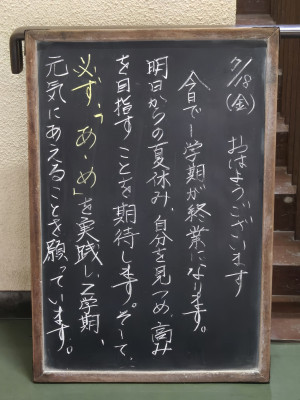 7/18(金) おはようございます
今日で1学期が終業になります。
明日からの夏休み、自分を見つめ、高み
を目指すことを期待します。そして、
必ず、「あ・め」を実践し、2学期、
元気にあえることを願っています。